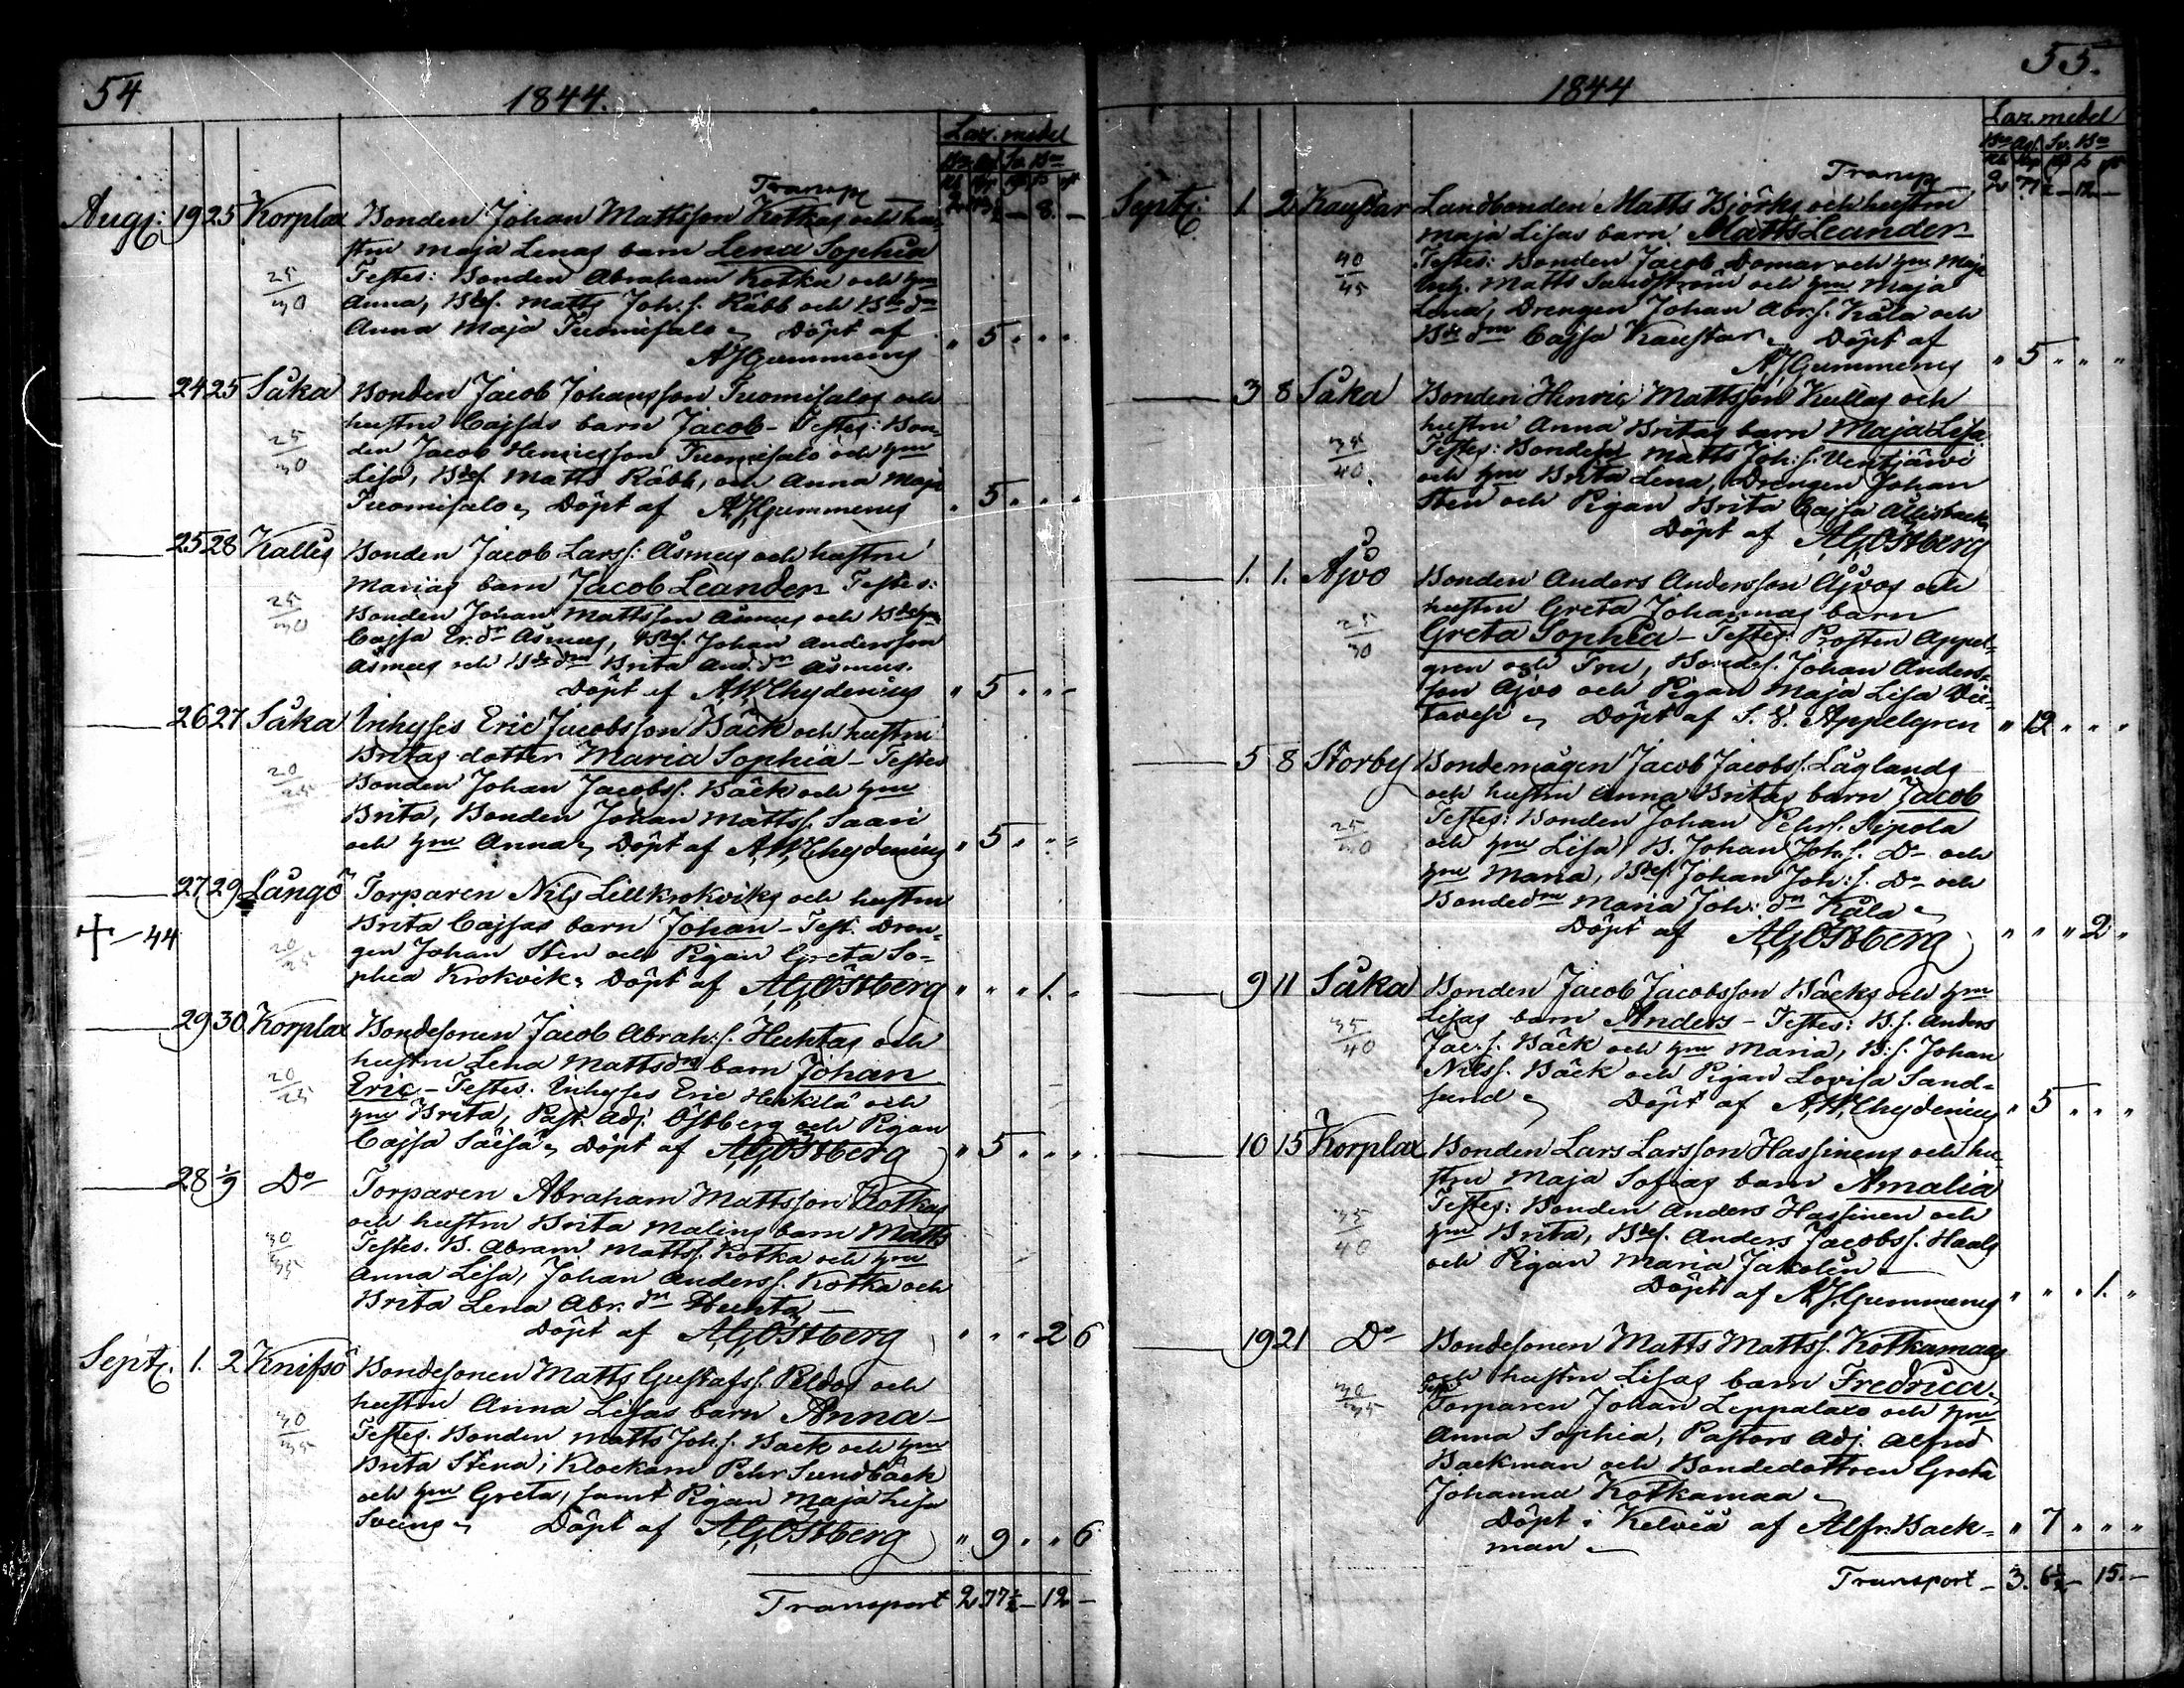 54
1844.
Laz. medel
Transp
8. -
Aug: 19 25 Korplax Bonden Johan Mattsson Kotkas och hu-
stru Maja Lenas barn Lena Sophia
25/30 Testes: Bonden Abraham Kotka och hru
Anna, Bdes. Matts Joh. s. Räbb och Bde dr
Anna Maja Tuomisalo. Döpt af
AJGummerus " 5 . . .
24 25 Såka Bonden Jacob Johansson Tuomisalos och
hustru Cajsas barn Jacob - Testes: Bon-
25/30 den Jacob Henricsson Tuomisalo och hru
Lisa, Bdes. Matts Räbb, och Anna Maja
Tuomisalo. Döpt af AJGummerus " 5 . . .
25 28 Kallis Bonden Jacob Larss: Åsmus och hustru
Marias barn Jacob Leander Testes:
25/30 Bonden Johan Mattsson Åsmus och
Cajsa Er. dr Åsmus, Johan Andersson
Åsmus och Bde dr Brita And. dr Åsmus.
Döpt af AWChydenius " 5 . . -
26 27 Såka Inhyses Eric Jacobsson Bäck och hustru
Britas dotter Maria Sophia - Testes
20/25 Bonden Johan Jacobss. Bäck och hru
Brita, Bonden Johan Mattss. Saari
och hru Anna. Döpt af AWChydenius " 5 . . "
27 29 Långö Torparen Nils Lillkrokviks och hustru
+ - 44 Brita Cajsas barn Johan - Test. Dren-
20/25 gen Johan Sten och Pigan Greta So-
phia Krokvik. Döpt af AGÖstberg " " " 1. "
29 30 Korplax Bondesonen Jacob Abrah: s. Huhtas och
hustru Lena Matts dr barn Johan
20/25 Eric - Testes. Inhyses Eric Heikilä och
hru Brita, Past. Adj. Östberg och Pigan
Cajsa Säisä. Döpt af AGÖstberg " 5 . . .
28 1/9 Do Torparen Abraham Mattsson Kotkas
och hustru Brita Malins barn Matts
30/35 Testes. B. Abram Mattss. Kotka och hru
Anna Lisa, Johan Anderss. Kotka och
Brita Lena Abr. dr Huhta -
Döpt af AGÖstberg " " " 2 6
Sept. 1. 2 Knifsö Bondesonen Matts Gustafss. Peldos och
hustru Anna Lisas barn Anna -
30/35 Testes. Bonden Matts Joh. s. Back och hru
Brita Stina; Klockarn Pehr Sundbäck
och hru Greta, samt Pigan Maja Lisa
Döpt af AGÖstberg " 9 . " 6
Transport 2 77 1/2 - 12 -
55.
1844
Laz. medel
Transp
2 77 1/2 - 12 -
Sept: 1. 2 Kaustar Landbonden Matts Björks och hustru
Maja Lisas barn Matts Leander
40/45 Testes: Bonden Jacob Domar och hru Maja
Inh. Matts Sandström och hru Maja
Lena, Drengen Johan Abr. s. Kåla och
Bde dr Cajsa Kaustar. Döpt af
AJGummerus " 5 " " "
3 8 Såka Bonden Henric Mattsson Kullas och
hustru Anna Britas barn Maja Lisa
35/40. Testes: Bonden Matts Joh: s. Ventjärwi
och hru Brita Lena, Drengen Johan
Sten och Pigan Brita Cajsa
Döpt af AGÖstberg
1. 1. Åjvo Bonden Anders Andersson Åjvos och
hustru Greta Johannas barn
25/30 Greta Sophia - Testes: Prosten Appel-
gren och Fru, Bondes. Johan Anders-
son Åjvo och Pigan Maja Lisa Vir-
tavesi. Döpt af S. V. Appelgren " 12 . . .
5 8 Storby Bondemågen Jacob Jacobss. Låglands
och hustru Anna Britas barn Jacob
25/30 Testes: Bonden Johan Pehrs. Nipola
och hru Lisa, B. Johan Joh. s. Do och
hru Maria, Bdes. Johan Joh: s. Do och
Bonde dr Maria Joh: dr Kåla
Döpt af AGÖstberg " " " 2 "
9 11 Såka Bonden Jacob Jacobsson Bäcks och hru
Lisas barn Anders - Testes: B. s. Anders
35/40 Jac. s. Bäck och hru Maria, B: s. Johan
Nilss. Bäck och Pigan Lovisa Sand-
sund. Döpt af AWChydenius " 5 . . "
10 15 Korplax Bonden Lars Larsson Hassinens och hu-
stru Maja Sofias barn Amalia
35/40 Testes: Bonden Anders Hassinen och
hru Brita, Bdes. Anders Jacobss. Haals
och Pigan Maria Jakolin -
Döpt af AJGummerus " " " 1. "
19 21 Do Bondesonen Matts Mattss. Kotkamaas
och hustru Lisas barn Fredrica.
30/35 Test: Torparen Johan Leppalaxo och hru
Anna Sophia, Pastors Adj. Alfred
Backman och Bondedottren Greta
Johanna Kotkamaa
Döpt i Kelviå af Alfr. Back-
man. " 7 " " "
Transport - 3. 6 1/2 - 15. -